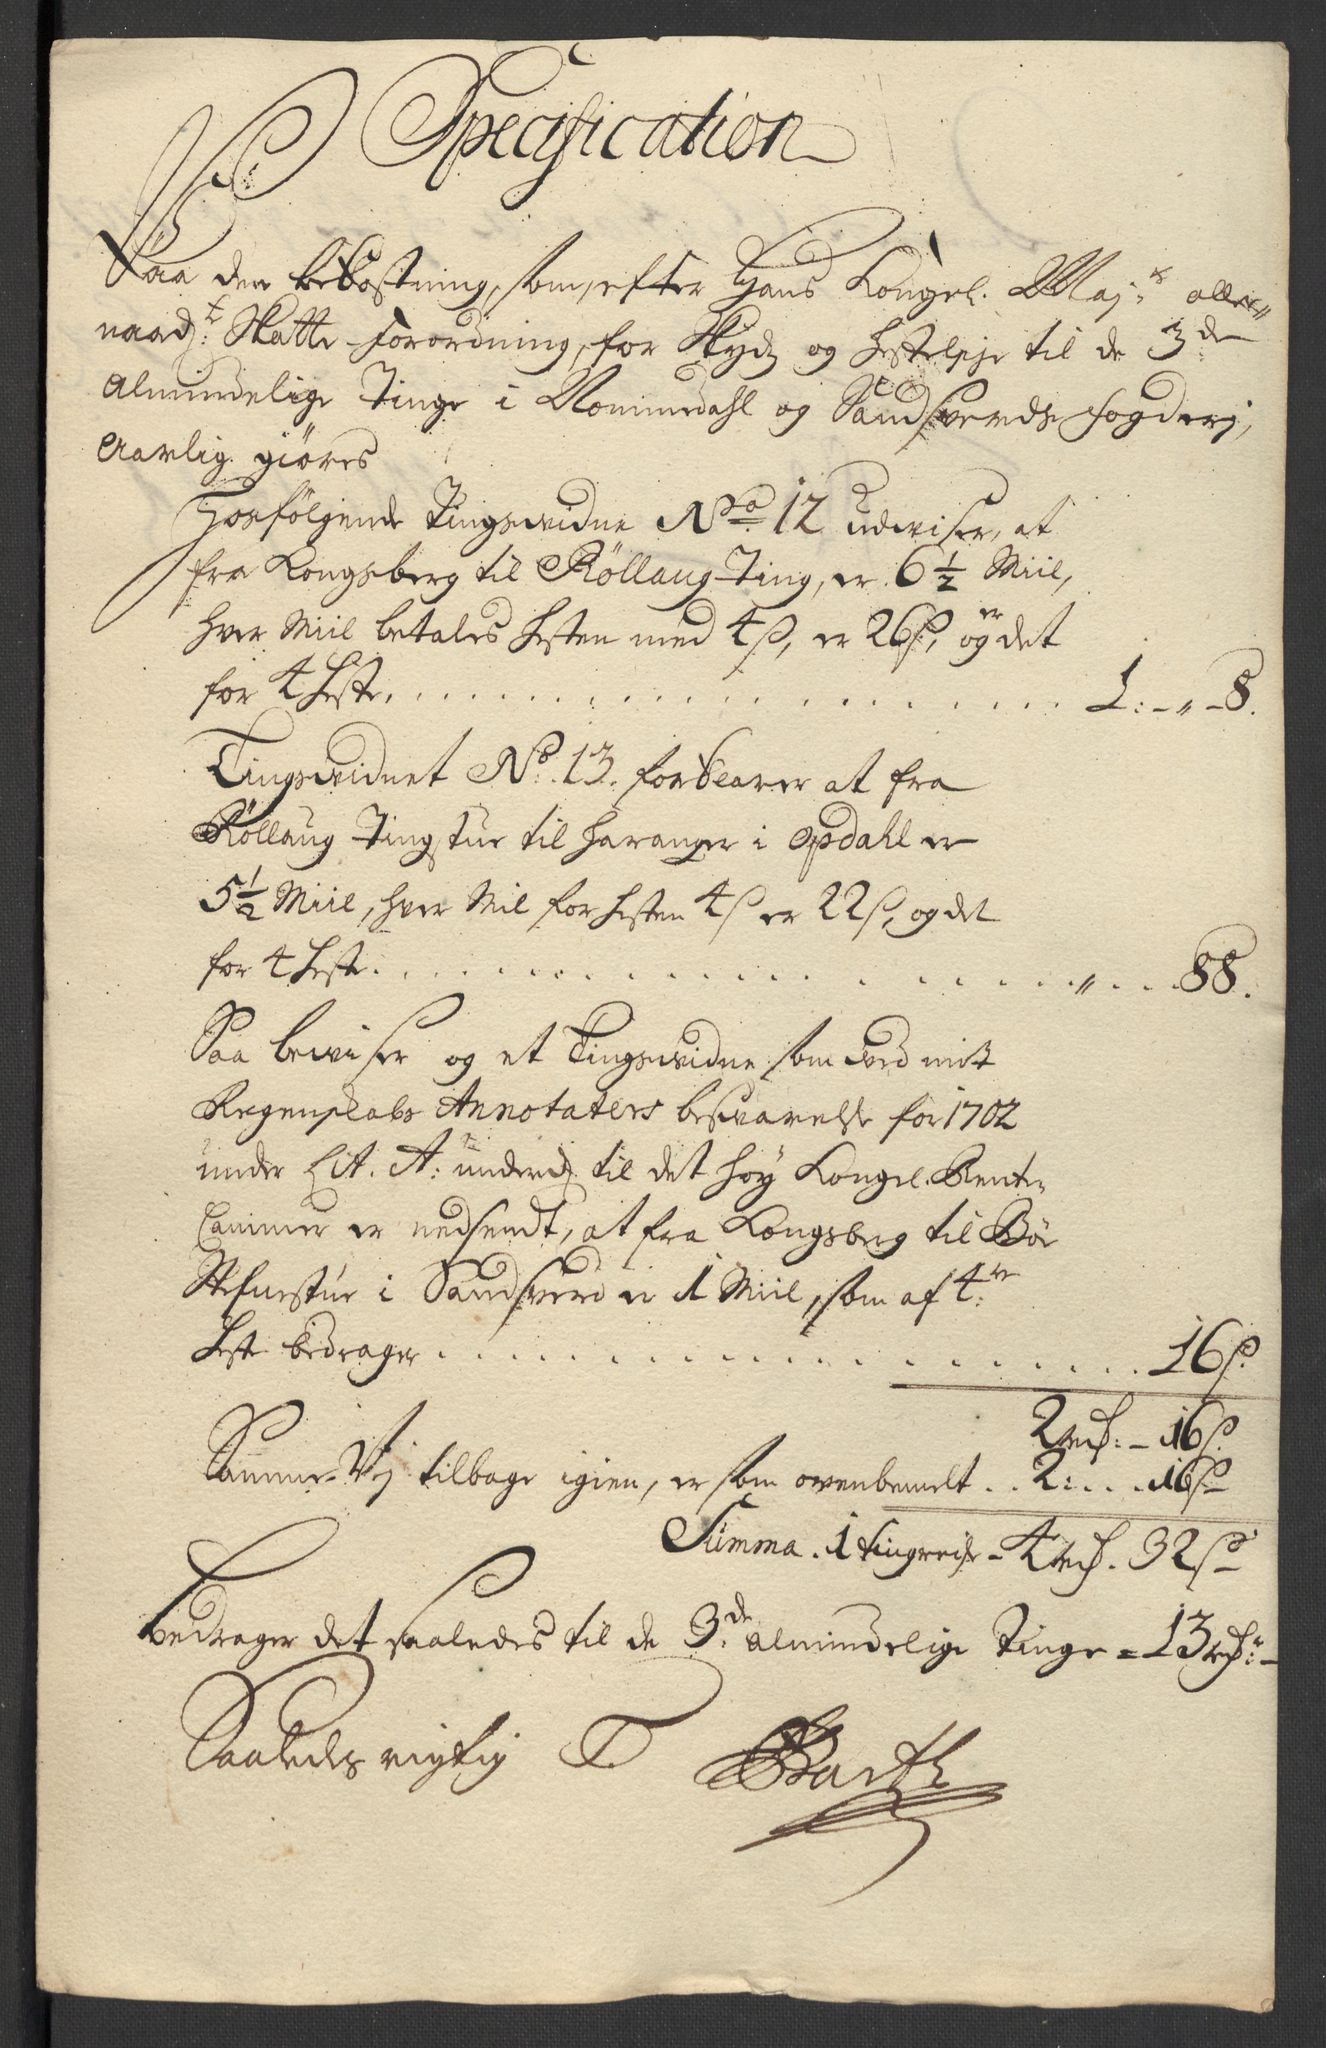 Specification
Paa den bekostning, som, efter Hans Kongel. May:ts aller=
naadste Skatte forordning, for Skyds og hesteleje til de 3de
Almindelige Tinge i Nommedahl og Sandsverds fogderj,
Aarlig giøres
Hosfølgende Tingsvidne No 12 udviser, at
fra Kongsberg til Röllaug Ting, er 6 1/2 Miil,
hver Miil betales hesten med 4 s, er 26 s, er og det
for 4 heste . . . . . . . . . . . . . . . . 1: - " - 8.
Tingsvidnet No. 13. forklarer at fra
Röllaug Tingstue til haranger i opdahl er
5 1/2 Miil, hver Mil for hesten 4 s er 22 s, og det
for 4 heste . . . . . . . . . . . . . . . . " . . . 88.
Saa beviser og et Tingsvidne som ved mit
Regenskabs Annotaters besvarelse for 1702
under Lit. A: underd: til det høy Kongel. Rente
Cammer er nedsendt, at fra Kongsberg til Bøe
Stefnestue i Sandsverd er 1 Miil, som af 4re
heste bedrager . . . . . . . . . . . . . . . . 16 s.
2 rdr: - 16 s.
Samme Vej tilbage igien, er som ovenbemelt . . 2: . . . 16 s
Summa . 1 tingreise - 4 rdr. 32 s
bedrager det saaledes til de 3de almindelige Tinge = 13 rdr: -
Saaledes rigtig T. Barth